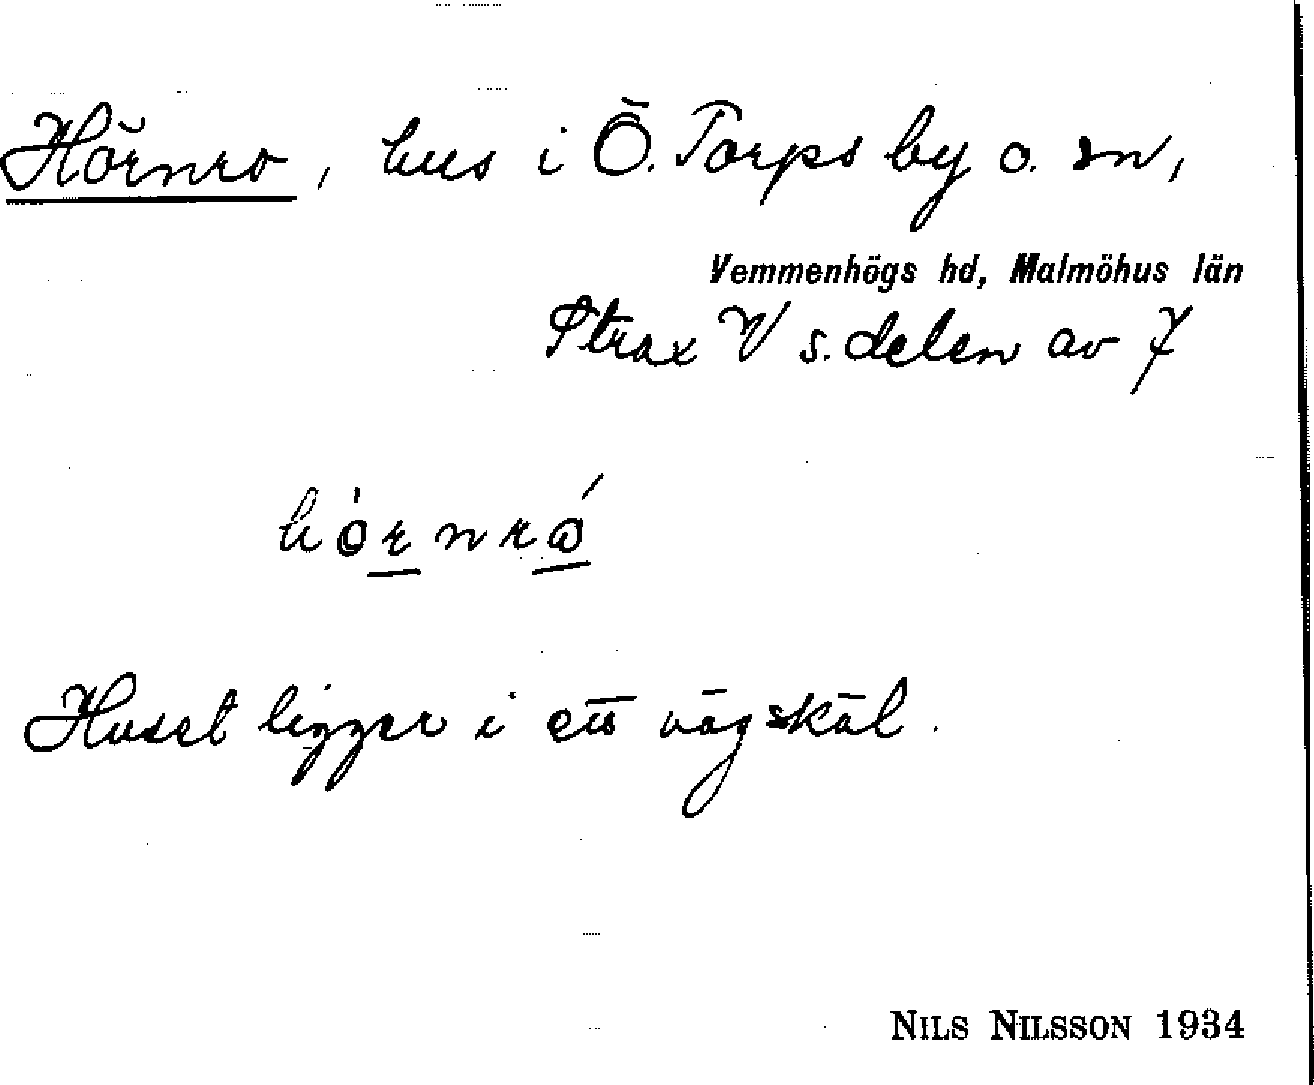 Hörnro, hus i Ö. Torps by o. sn,
Vemmenhögs hd, Malmöhus län
Strax V s. delen av 7
Huset ligger i ett vägskäl.
NILS NILSSON 1934